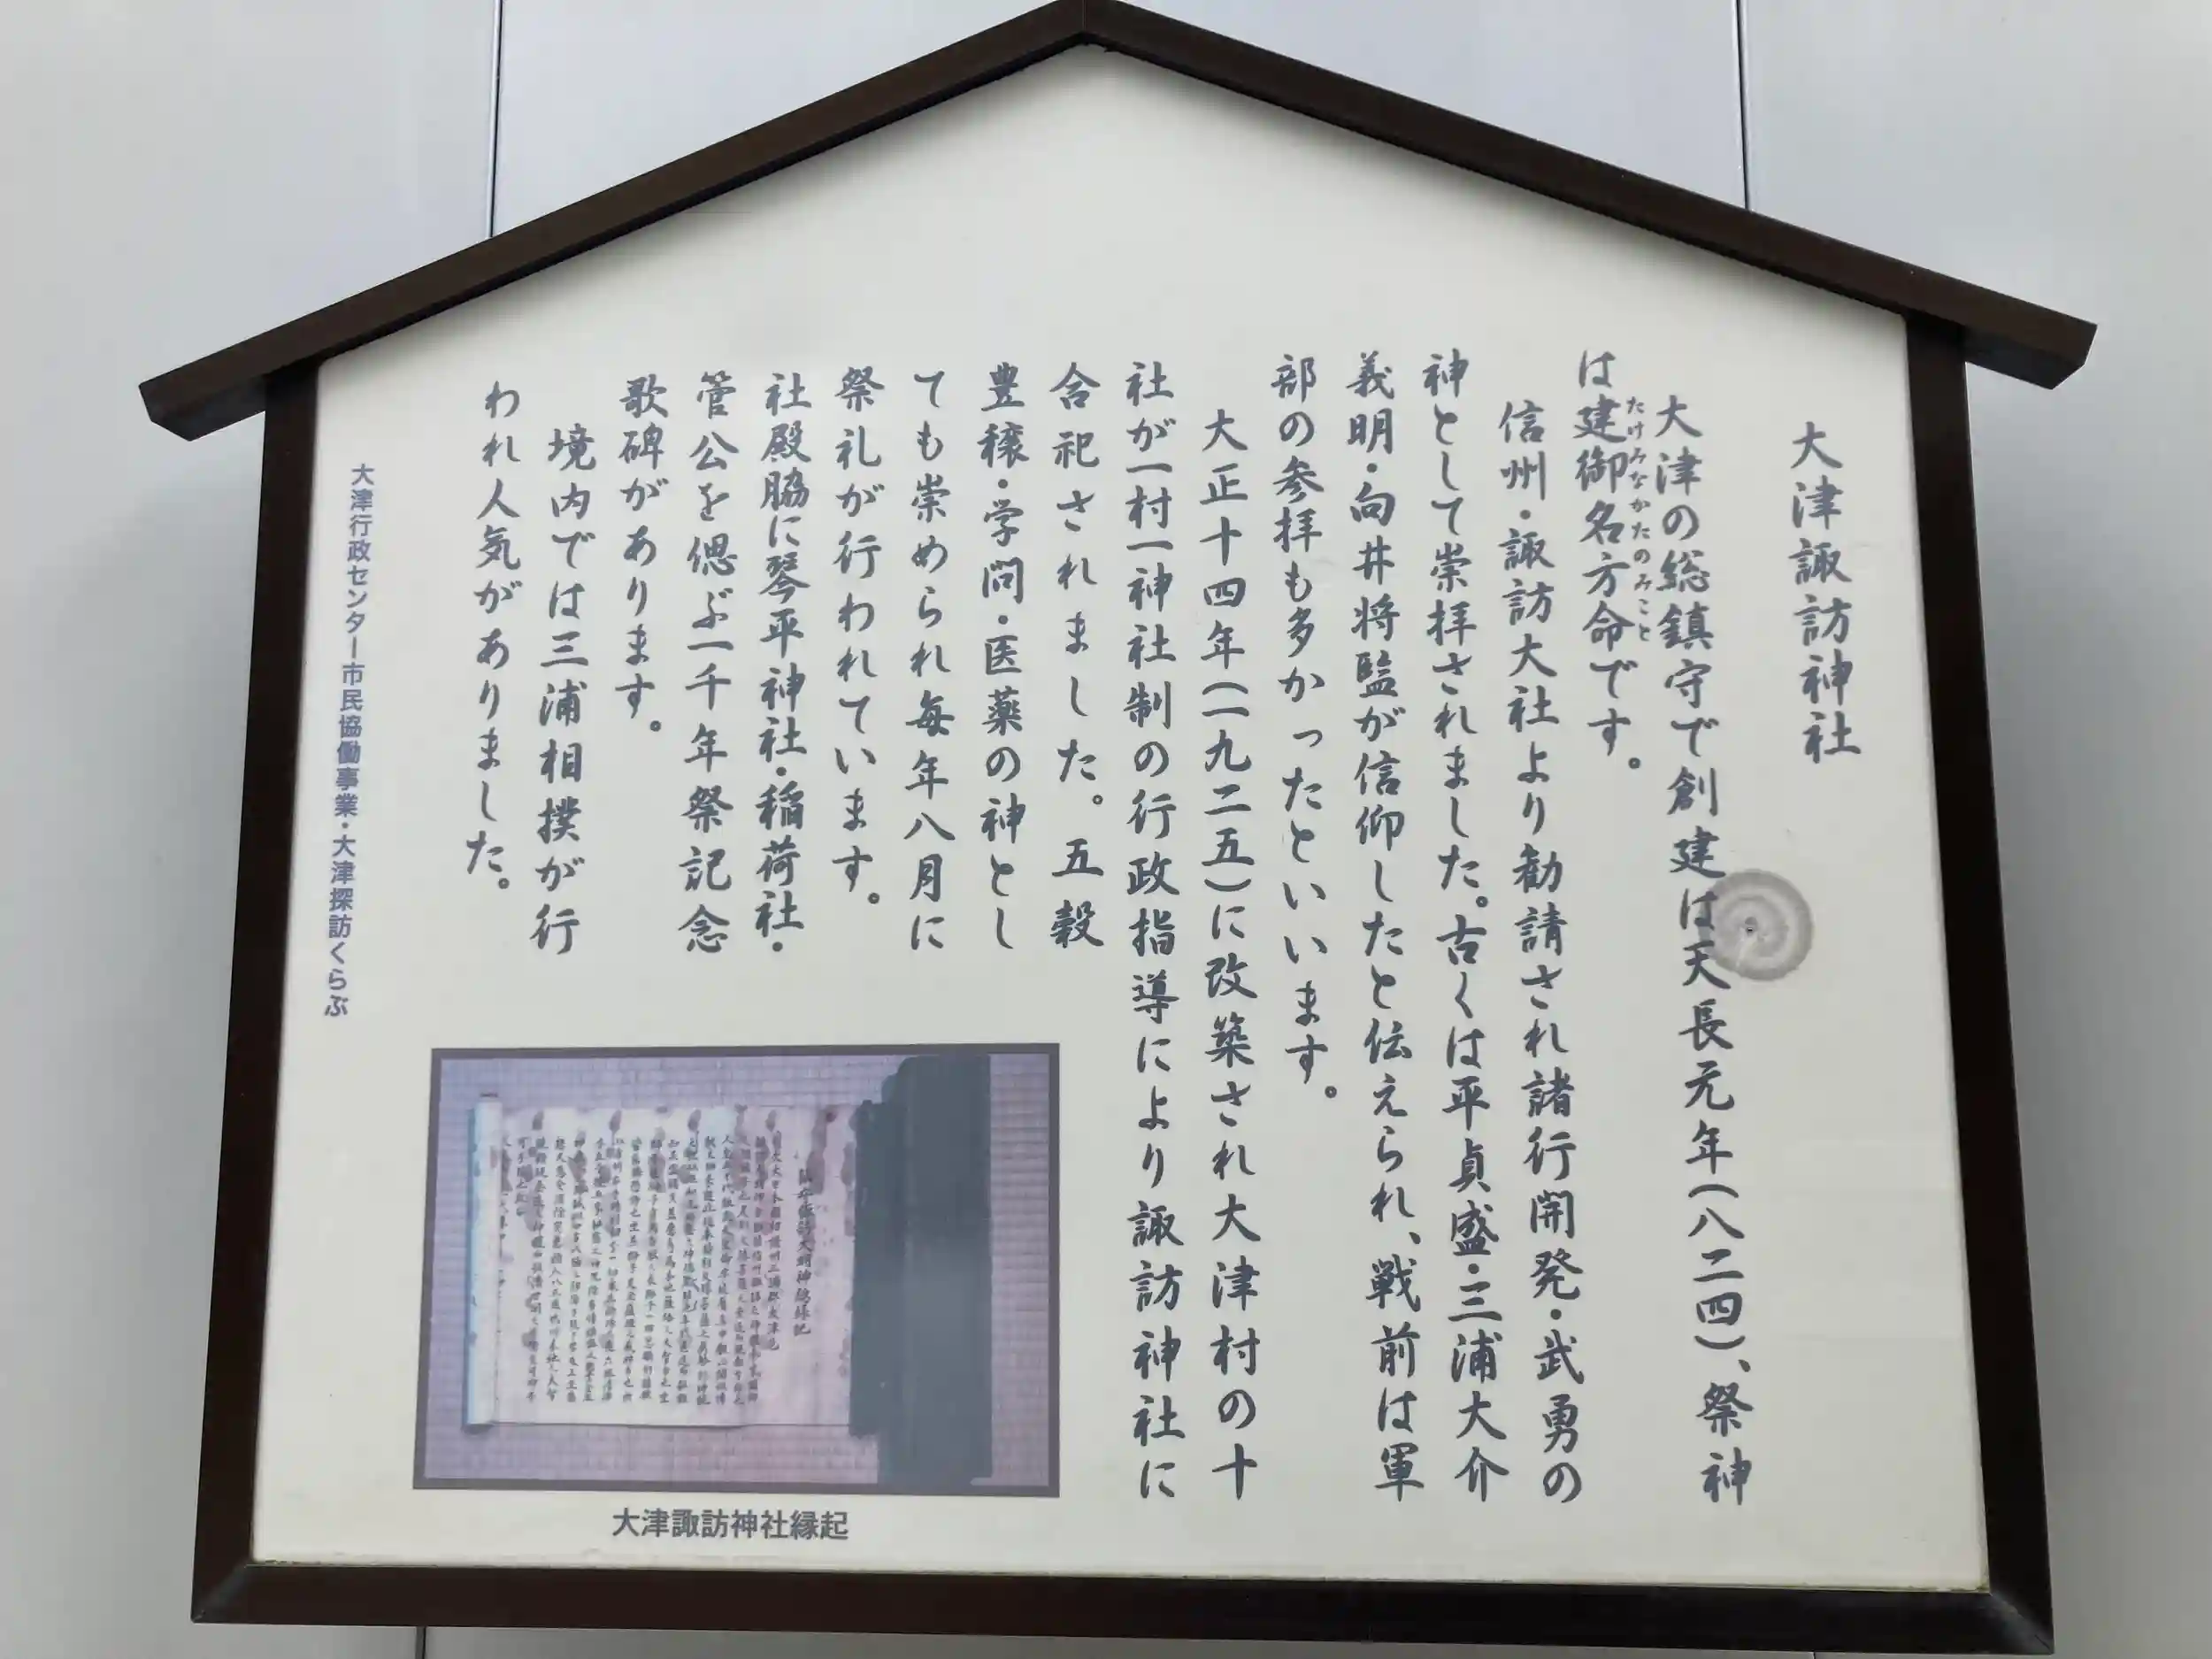 大津諏訪神社
大津の総鎮守で創建は天長元年(八二四)、祭神
は建御名方命です。
たけみなかたのみこと
信州・諏訪大社より勧請され諸行開発・武勇の
神として崇拝されました。古くは平貞盛・三浦大介
義明・向井将監が信仰したと伝えられ、戦前は軍
部の参拝も多かったといいます。
大正十四年(一九二五)に改築され大津村の十
社が一村一神社制の行政指導により諏訪神社に
合祀されました。五穀
豊穣・学問・医薬の神とし
ても崇められ毎年八月に
祭礼が行われています。
社殿脇に琴平神社・稲荷社・
管公を偲ぶ一千年祭記念
歌碑があります。
境内では三浦相撲が行
われ人気がありました。
大津行政センター市民協働事業・大津探訪くらぶ
大津諏訪神社縁起